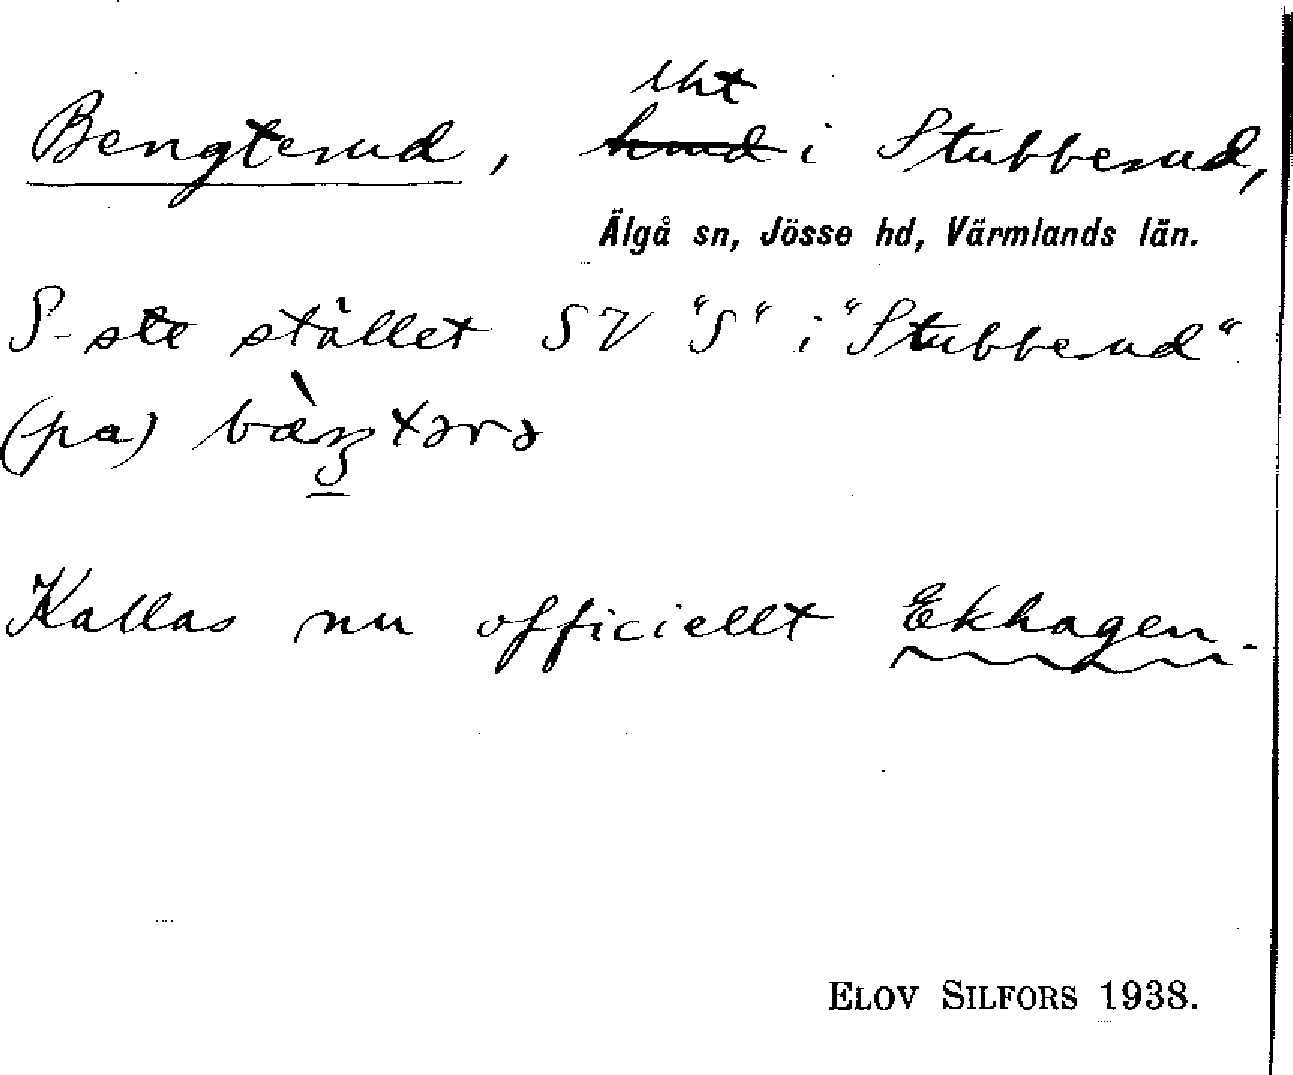 Bengterud, lht i Stubberud,
Älgå sn, Jösse hd, Värmlands län.
S-ste stället SV "S" i "Stubberud"
(pa)
Kallas nu officiellt Ekhagen.
ELOV SILFORS 1938.